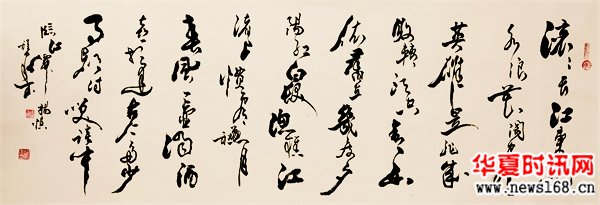 滚滚长江东逝
水浪花淘尽
英雄是非成
败转头空青山
依旧在几度夕
阳红白发渔樵江
渚上惯看秋月
春风一壶浊酒
喜相逢古今多少
事都付笑谈中
临江仙 杨慎
华夏时讯网
www.news168.cn